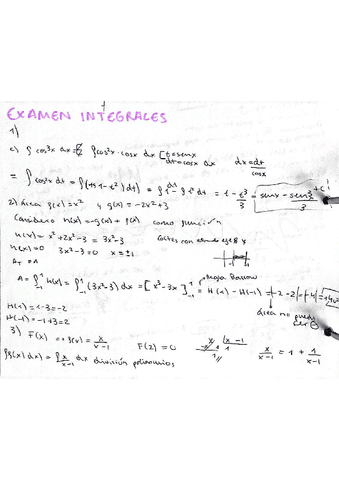 EXAMEN INTEGRALES
1)
c) ∫ cos³x dx = ∫ cos²x · cosx dx [t = senx dt = cosx dx dx = dt/cosx
= ∫ cos²x dt = ∫(1 - t²) dt = ∫ dt - ∫ t² dt = t - t³/3 = senx - sen³/3 + C
2) Área f(x) = x² y g(x) = -2x² + 3
Considero h(x) = -g(x) + f(x) como función
h(x) = x² + 2x² - 3 = 3x² - 3
h(x) = 0 3x² - 3 = 0 x = ±1 Cortes con eje X
A = ∫₋₁¹ h(x) = ∫₋₁¹ (3x² - 3) dx = [x³ - 3x]₋₁¹ = H(1) - H(-1) = |-2 - 2| = |-4| = 4u²
Regla Barrow
H(1) = 1 - 3 = -2
H(-1) = -1 + 3 = 2
área no puede ser ⊖
3) F(x) f(x) = x/x-1 F(2) = 0
x |x - 1 x/x-1 = 1 + 1/x-1
∫f(x) dx = ∫ x/x-1 dx división polinomios